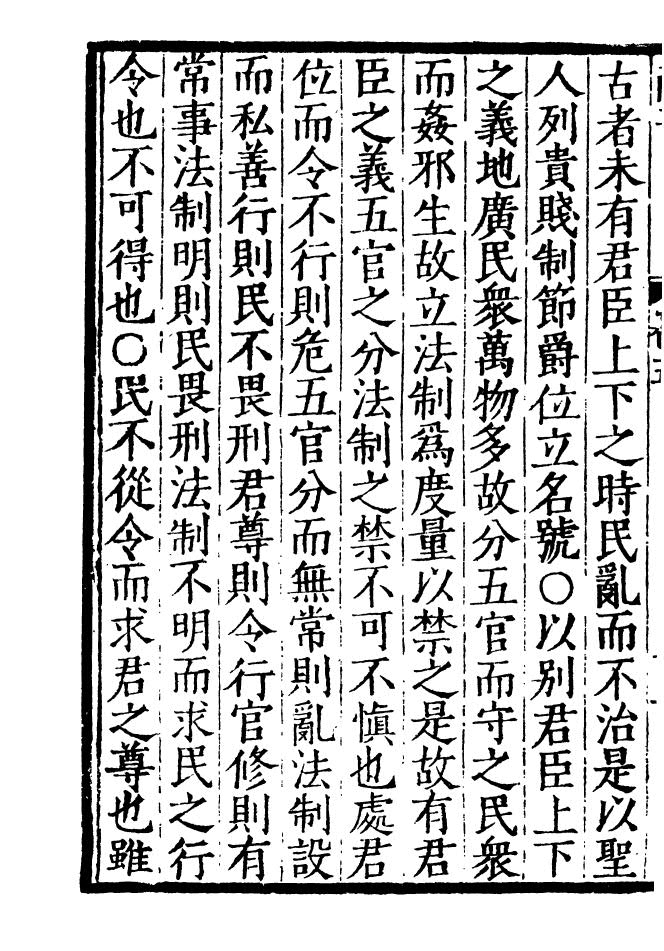 古者未有君臣上下之時民亂而不治是以聖
人列貴賤制節爵位立名號○以別君臣上下
之義地廣民衆萬物多故分五官而守之民衆
而姦邪生故立法制爲度量以禁之是故有君
臣之義五官之分法制之禁不可不慎也處君
位而令不行則危五官分而無常則亂法制設
而私善行則民不畏刑君尊則令行官修則有
常事法制明則民畏刑法制不明而求民之行
令也不可得也○民不從令而求君之尊也雖